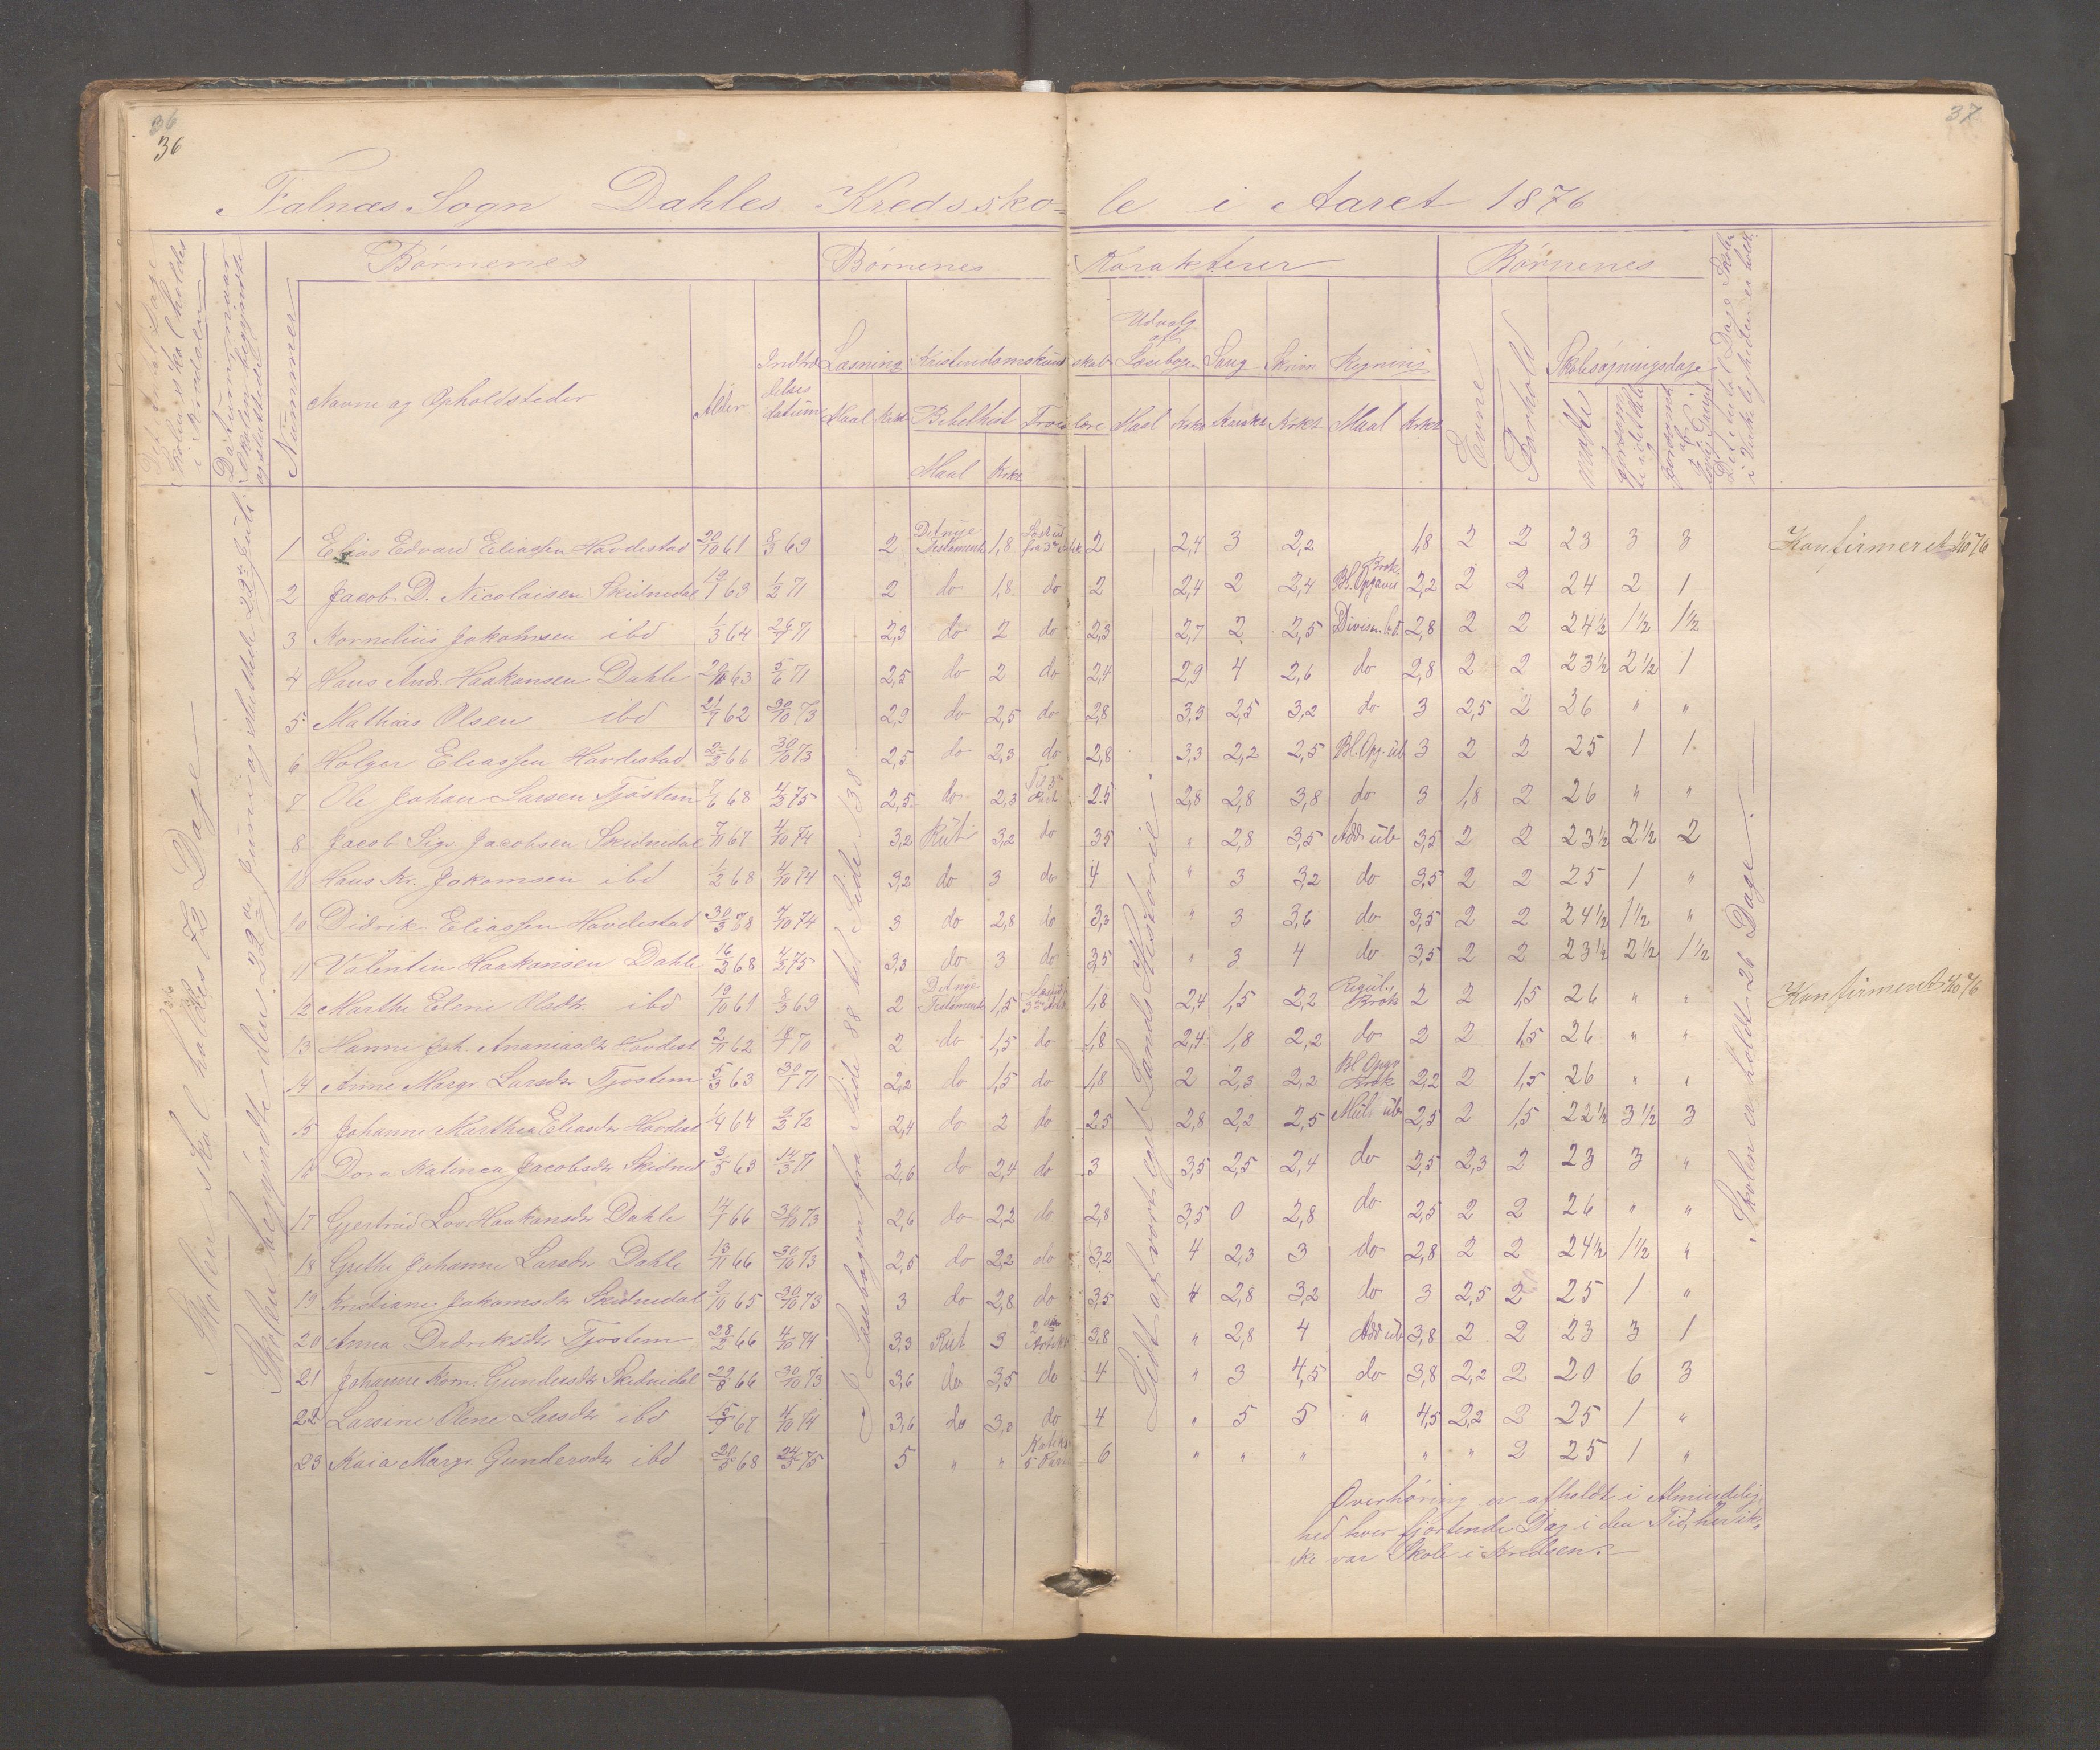 36
36
37
Falnæs Sogn Dahles Kredssko- le i Aaret 1876
Det Antal Dage Skolen skal holdes i Kredsen
Datum, naar Skolen begyndte og sluttede
Nummer
Børnenes
Børnenes Karakterer
Børnenes
Det Antal Dage Skolen i Virkeligheden er holdt.
Navne og Opholdsteder
Alder
Indtrædelses datum
Læsning
Kristendomskundskab
Udvalg af Læsebogen
Sang
Skrivn
Regning
Evne
Forhold
Skolesøgningsdage
Maal
Bibelhist
Troeslære
Maal
Krkt
Karakt
Krkt
Maal
Krkt
mødte
forsømte i det Hele
Maal Krkt
Skolen skal holdes 72 Dage
Skolen begyndte den 22de Juni og sluttede 22de Juli.
I Læsebogen fra Side 88 til Side 138
Lidt af vort eget Lands Historie.
Skolen er holdt 26 Dage.
1 Elias Edvard Eliassen Hovdestad 20/10 61 8/3 69 2 Det nye Testament 1,8 2 2,4 3 2,2 1,8 2 2 23 3 3 Konfirmeret 1/10 76
2 Jacob D. Nicolaisen Skeidnedal 19/1 63 1/2 71 2 do 1,8 do 2 2,4 2 2,4 Bl. Opgaver Brøk 2,2 2 2 24 2 1
3 Kornelius Jokomsen ibd 1/3 64 26/1 71 2,3 do 2 do 2,3 2,7 2 2,5 2,8 2 2 24½ 1½ 1½
4 Hans And. Haakonsen Dahle 63 5/6 71 2,5 do 2 do 2,4 2,9 4 2,6 do 2,8 2 2 23½ 2½ 1
5 Mathias Olsen ibd 21/1 62 30/10 73 2,9 do 2,5 do 2,8 3,5 2,5 3,2 do 3 2,5 2 26 " "
6 Holger Eliassen Hovdestad 2/3 66 30/10 73 2,5 do 2,3 do 2,8 3,3 2,2 2,5 Bl. Opg. üb 3 2 2 25 1 1
7 Ole Johan Larsen Tjøstem 7/6 68 4/2 75 2,5 do 2,3 2.5 2,8 2,8 3,8 do 3 1,8 2 26 " "
8 Jacob Sigv. Jacobsen Skeidnedal 7/11 67 4/10 74 3,2 Rut 3,2 do 35 " 2,8 3,5 Add üb 3,5 2 2 23½ 2½ 2
Hans Kr. Jokomsen ibd 1/2 68 4/10 74 3,2 do 3 do 4 " 3 3,2 do 3,5 2 2 25 1 "
10 Didrik Eliassen Hovdestad 30/3 68 4/10 74 3 do 2,8 do 3,3 " 3 3,6 do 3,5 2 2 24½ 1½ "
11 Valentin Haakonsen Dahle 16/2 68 4/2 75 3,3 do 3 do 3,5 " 3 4 do 3,5 2 2 23½ 2½ 1½
12 Marthe Elene Olsdtr. ibd 19/10 61 8/3 69 2 D. Nye Testament 1,5 1,8 2,4 1,5 2,2 Regul. Brøk 2 2 1,5 26 " " Konfirmeret 1/10 76
13 Hanne Joh. Ananiasdtr Hovdest 2/11 62 70 2 do 1,5 do 1,8 2,4 1,8 2,2 do 2 2 1,5 26 " "
14 Anne Margr. Larsdtr Tjostem 5/3 63 30/1 71 2,2 do 1,5 do 1,8 2 2,3 2,2 Bl Opgv Brøk 2,2 2 1,5 26 " "
15 Johanne Marthea Eliasdtr Hovdest 64 72 2,4 do 2 do 25 2,8 2,2 2,5 Mül. üb 2,5 2 1,5 22½ 3½ 3
16 Dora Katinca Jacobsdtr Skidned 3/5 63 14/3 71 2,6 do 2,4 do 3 3,5 2,5 2,4 do 2,5 2,3 2 23 3 "
17 Gjertrud Lov. Haakonsdtr Dahle 14/1 66 30/10 73 2,6 do 2,2 do 2,8 3,5 0 2,8 do 2,5 2 2 26 " "
18 Grethe Johanne Larsdtr Dahle 13/11 66 30/10 73 2,5 do 2,2 do 3,2 4 2,3 3 do 2,8 2 2 24½ 1½ "
19 Kristiane Jokomsdtr Skidnedal 9/10 65 30/10 73 3 do 2,8 do 3,5 4 2,8 3,2 do 3 2,5 2 25 1 "
20 Anna Didriksdtr Tjostem 28/2 66 4/10 74 3,3 Rut 3 3,8 " 2,8 4 Add üb 3,8 2 2 23 3 1
21 Johanne Korn. Gundersdtr Skidnedal 66 30/10 73 3,6 do 3,5 do 4 " 3 4,5 do 3,8 2,2 2 20 6 3
22 Larsine Olene Larsdtr ibd 67 4/10 74 3,6 do do 4 " 5 5 " 4,5 2,2 2 25 1 "
23 Kaia Margr. Gundersdtr ibd 68 24/5 75 5 " " 6 " " " " " 2 25 1 "
Overhøring er afholdt i Almindelig-
hed hver fjortende Dag i den Tid, her ik-
ke var Skole i Kredsen.